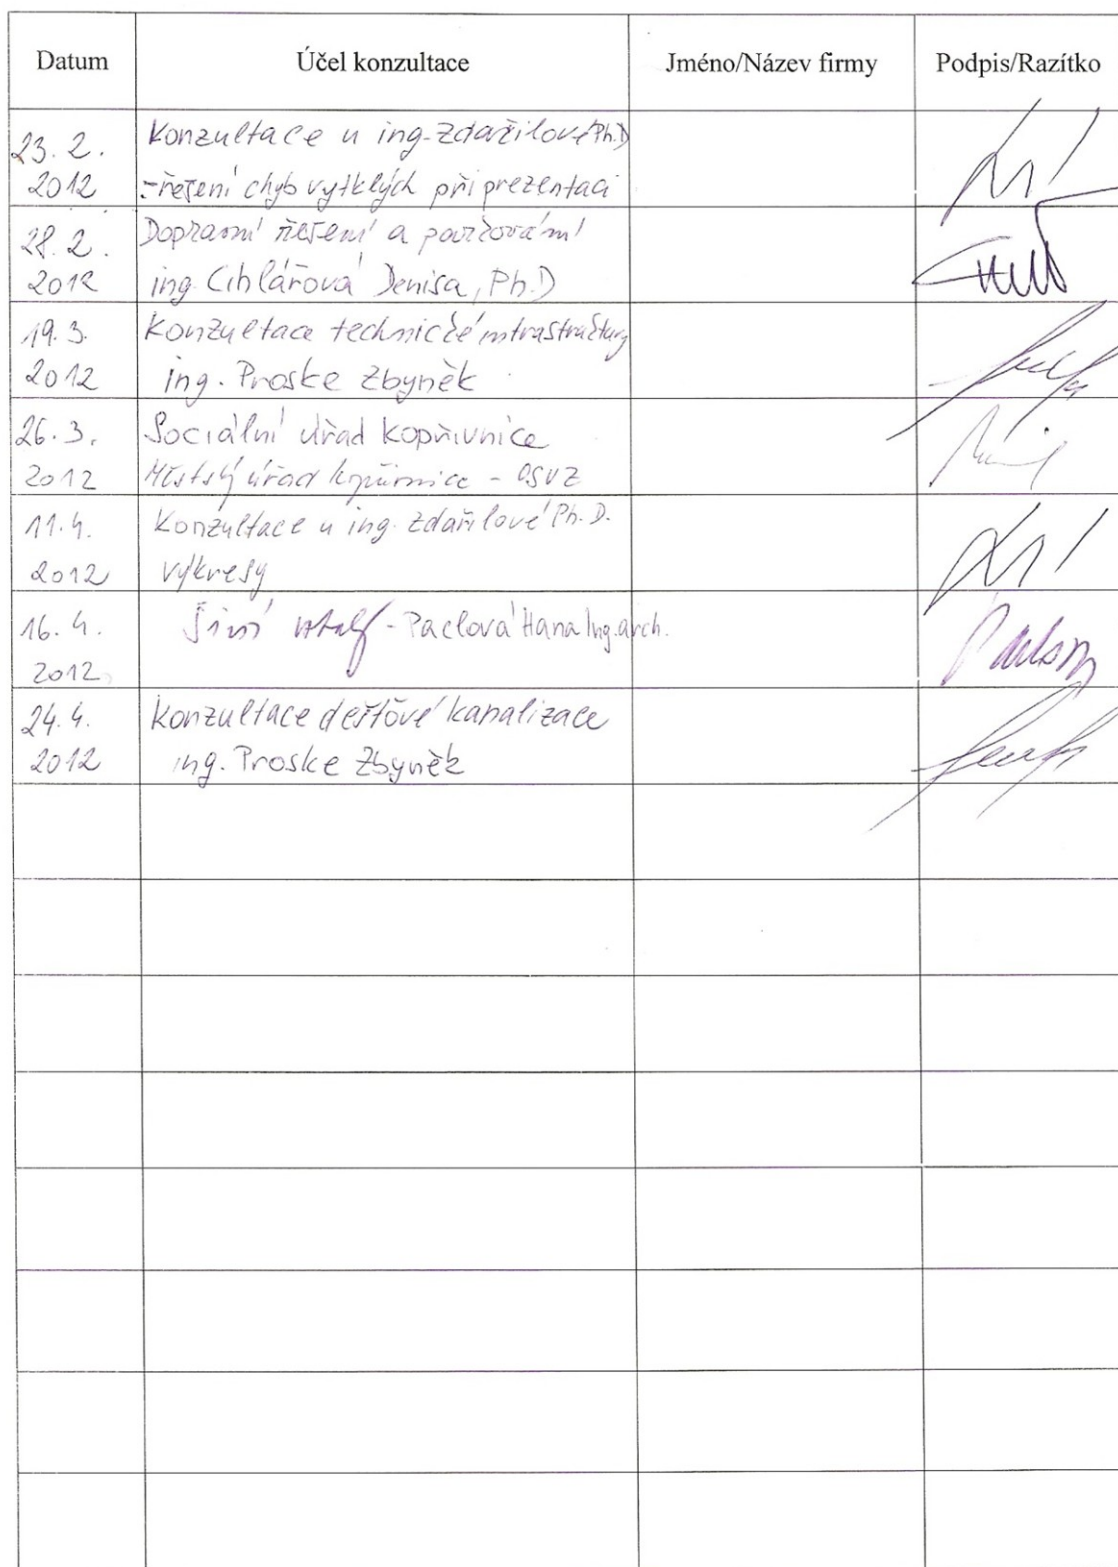 Datum Účel konzultace Jméno/Název firmy Podpis/Razítko
23. 2. Konzultace u ing. Zdařilové Ph.D
2012 -řešení chyb vytklých při prezentaci
28. 2. Dopravní řešení a
2012 ing. Cihlářová Denisa, Ph.D
19. 3. Konzultace technické infrastruktury
2012 ing. Proske Zbyněk
26. 3. Sociální úřad Kopřivnice
2012 Městský úřad Kopřivnice - OSVZ
11. 4. Konzultace u ing. Zdařilové Ph.D.
2012 výkresy
16. 4. Širší - Paclová Hana Ing.arch.
2012
24. 4. Konzultace dešťové kanalizace
2012 ing. Proske Zbyněk